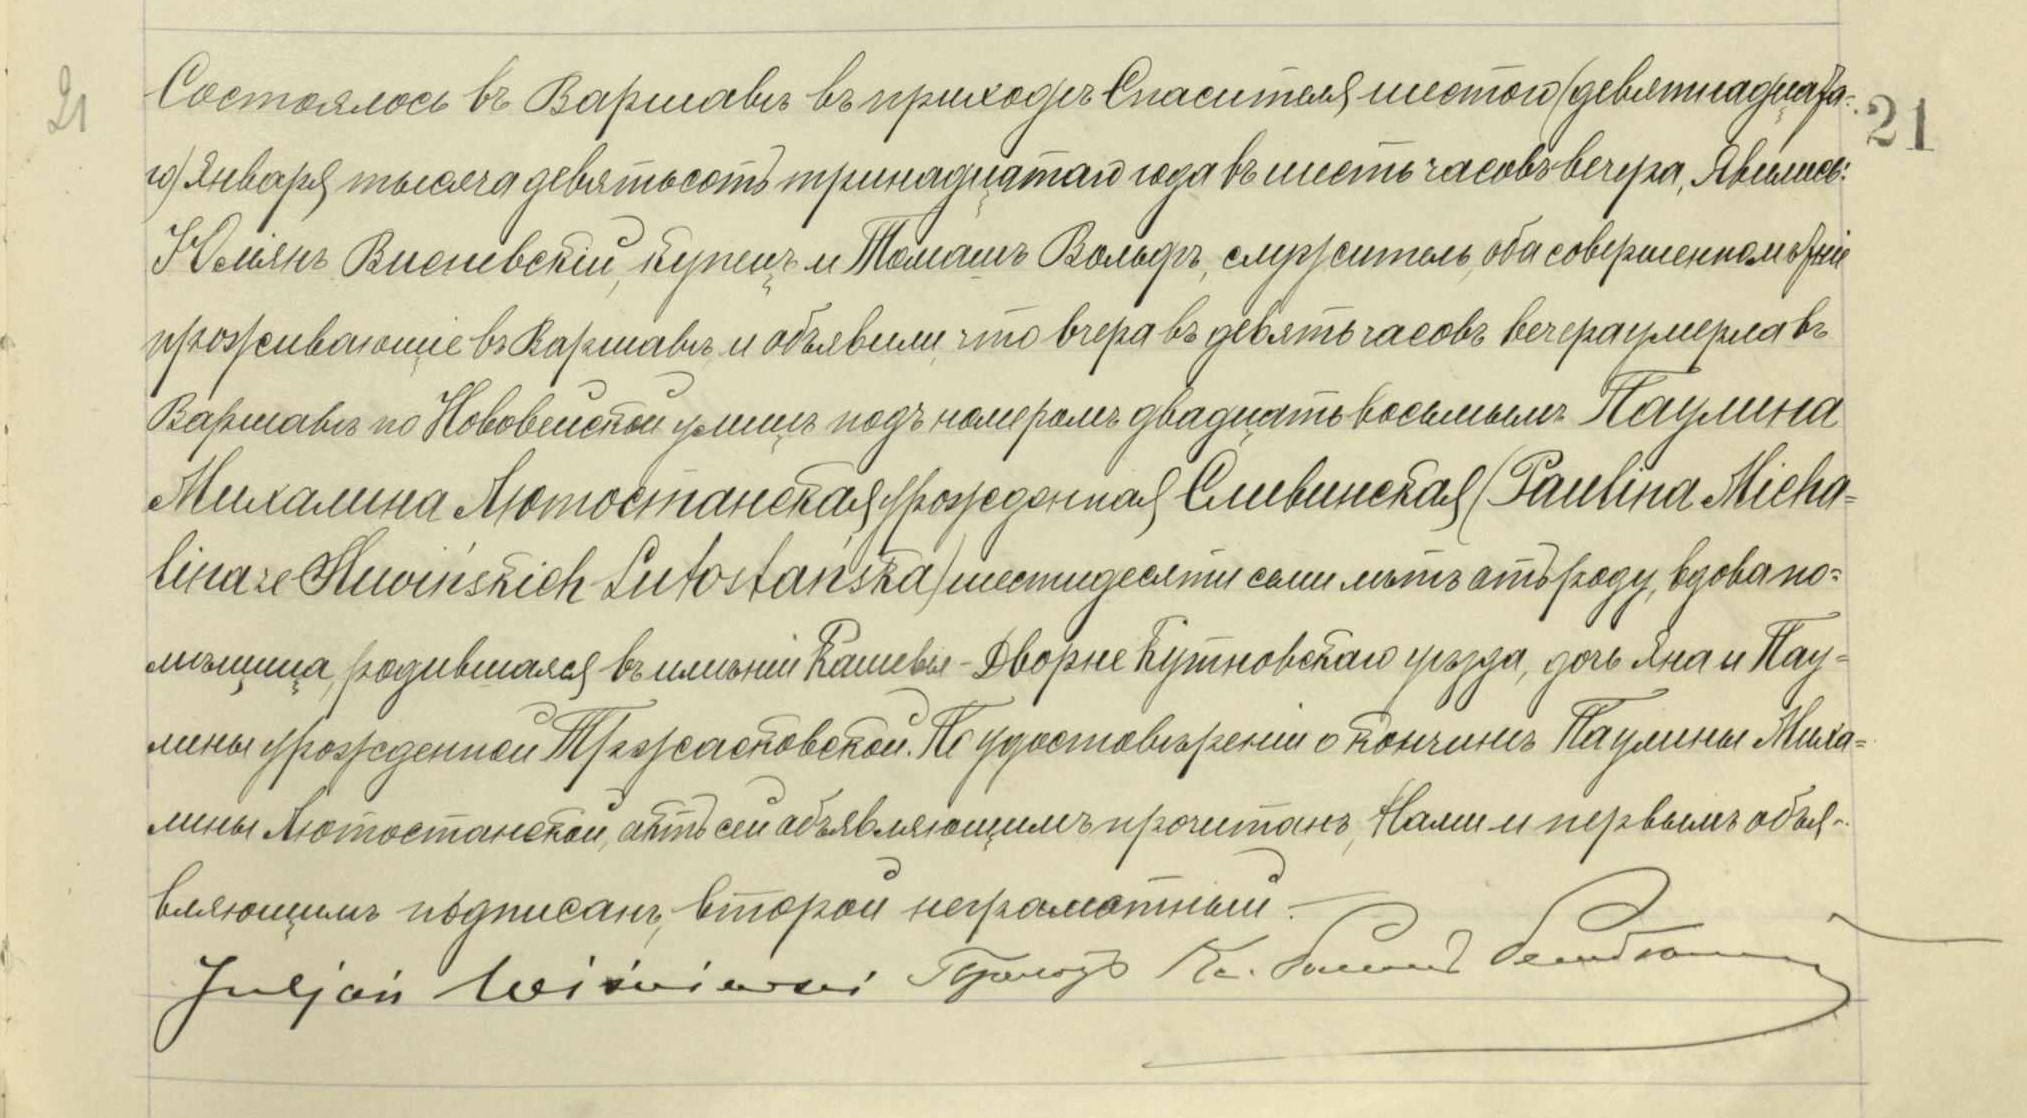 21
Состоялось въ Варшавѣ въ приходѣ Спасителя шестого (девятнадцата-
го) Января тысяча девятьсотъ тринадцатаго года въ шесть часовъ вечера, Явились:
21
Юліянъ Висневскій, купецъ и Томашъ Вольфъ, служитель, оба совершеннолѣтніе
проживающіе въ Варшавѣ, и объявили, что вчера въ девять часовъ вечера умерла въ
Варшавѣ по Нововейской улицѣ подъ номеромъ двадцать восьмымъ Паулина
Михалина Лютостанская урожденная Сливинская (Paulina Micha=
lina ze Śliwińskich Lutostańska) шестидесяти семи лѣтъ отъ роду, вдова по=
мѣщица, родившаяся въ имѣніи Кашевы-Дворне Кутновскаго уѣзда, дочь Яна и Пау=
лины урожденной Тржасковской. По удостовѣреніи о кончинѣ Паулины Миха=
лины Лютостанской, актъ сей объявляющимъ прочитанъ, Нами и первымъ объя-
вляющимъ подписанъ, второй неграмотный.
Juljan Wiśniewski Кс.